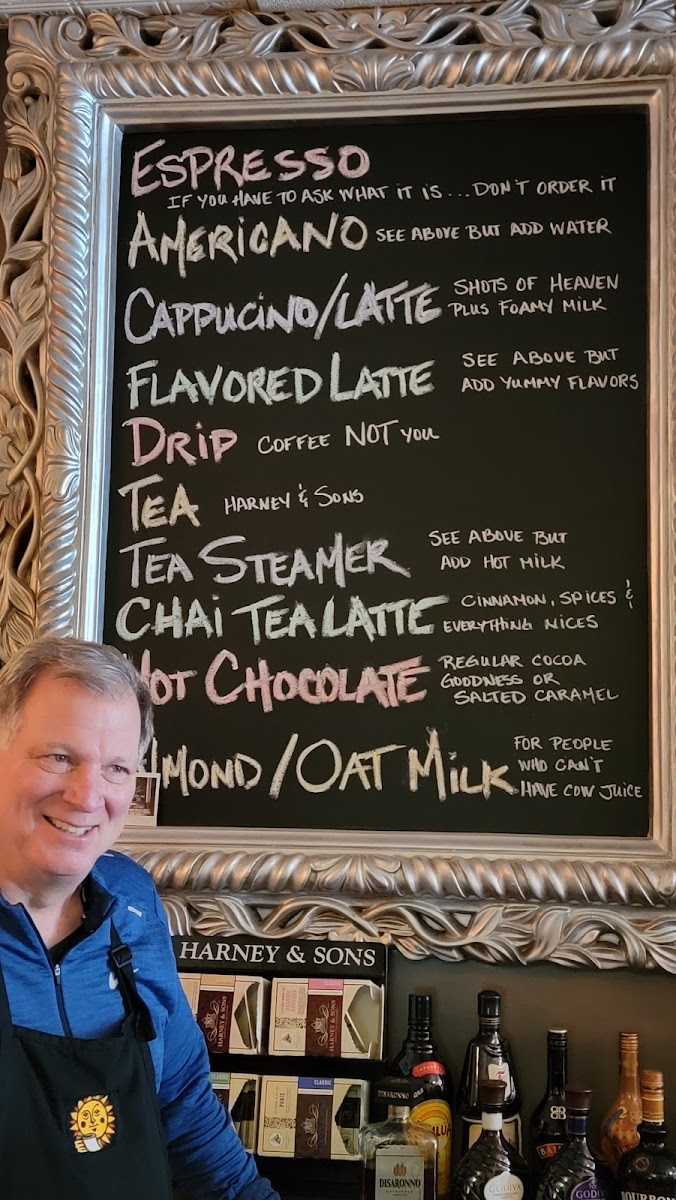 ESPRESSO
IF YOU HAVE TO ASK WHAT IT IS... DON'T ORDER IT
AMERICANO SEE ABOVE BUT ADD WATER
CAPPUCINO/LATTE SHOTS OF HEAVEN
PLUS FOAMY MILK
FLAVORED LATTE SEE ABOVE BUT
ADD YUMMY FLAVORS
DRIP COFFEE NOT YOU
TEA HARNEY & SONS
TEA STEAMER SEE ABOVE BUT
ADD HOT MILK
CHAI TEA LATTE CINNAMON, SPICES &
EVERYTHING NICES
HOT CHOCOLATE REGULAR COCOA
GOODNESS OR
SALTED CARAMEL
LMOND/OAT MILK FOR PEOPLE
WHO CAN'T
HAVE COW JUICE
HARNEY & SONS
HARNEY & SONS
HARNEY & SONS
CLASSIC
PARIS
DISARONNO
DISARONNO
GODIVA
GODIVA
BOURBON